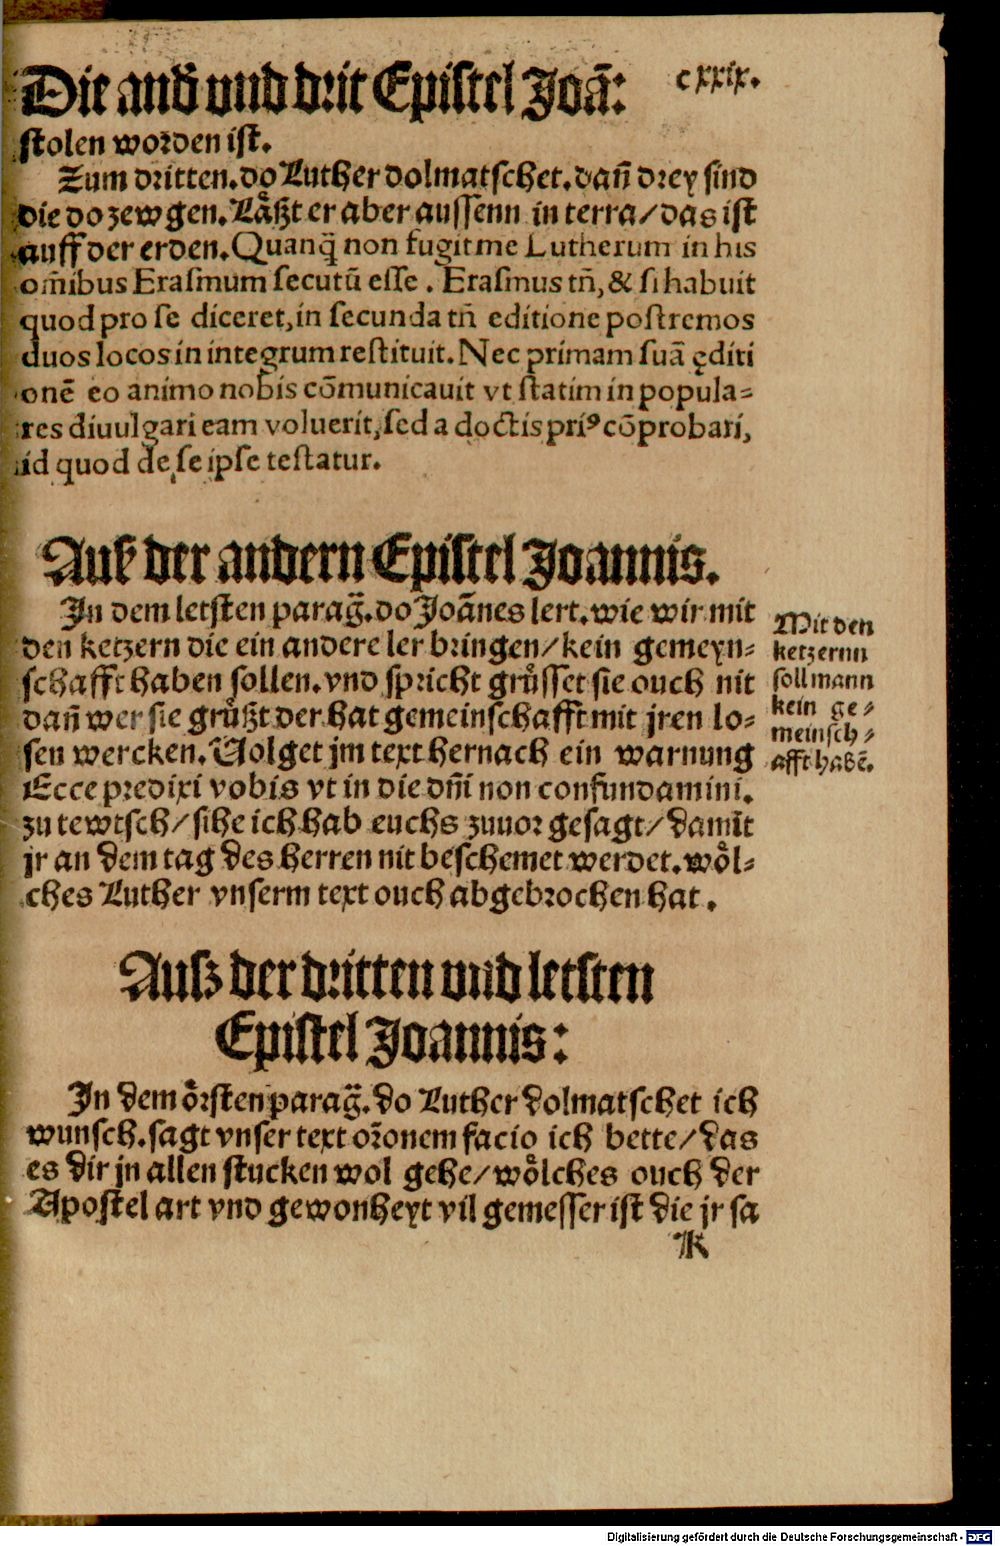 Die anđ vnd drit Epistel Joā: cxxix.
stolen worden ist.
Zum dritten. do Luther dolmatschet. dañ drey sind
die do zewgen. Låßzt er aber aussenn in terra/ das ist
auff der erden. Quanq̃ non fugit me Lutherum in his
om̃ibus Erasmum secutū esse. Erasmus tñ, & si habuit
quod pro se diceret, in secunda tñ editione postremos
duos locos in integrum restituit. Nec primam suā ęditi
onē eo animo nobis cōmunicavit vt statim in popula=
res diuulgari eam voluerit, sed a doctis priꝰ cōprobari,
id quod de se ipse testatur.
Auß der andern Epistel Joannis.
In dem letsten parag̃. do Joānes lert. wie wir mit
den ketzern die ein andere ler bringen/ kein gemeyn=
schafft haben sollen. vnd spricht grůsset sie ouch nit
dañ wer sie grůßzt der hat gemeinschafft mit jren lo=
sen wercken. Uolget jm text hernach ein warnung
Ecce predixi vobis vt in die dñi non confundamini.
zu tewtsch/ sihe ich hab euchs zuuor gesagt/ damit
jr an dem tag des herren nit beschemet werdet. wöl=
ches Luther vnserm text ouch abgebrochen hat.
Mit den
ketzernn
soll mann
kein ge=
meinsch=
afft habē.
Außz der dritten vnd letsten
Epistel Joannis:
In dem örsten parag̃. do Luther dolmatschet ich
wunsch. sagt vnser text or̄onem facio ich bette/ das
es dir jn allen stucken wol gehe/ wölches ouch der
Apostel art vnd gewonheyt vil gemesser ist die jr sa
R
Digitalisierung gefördert durch die Deutsche Forschungsgemeinschaft - DFG